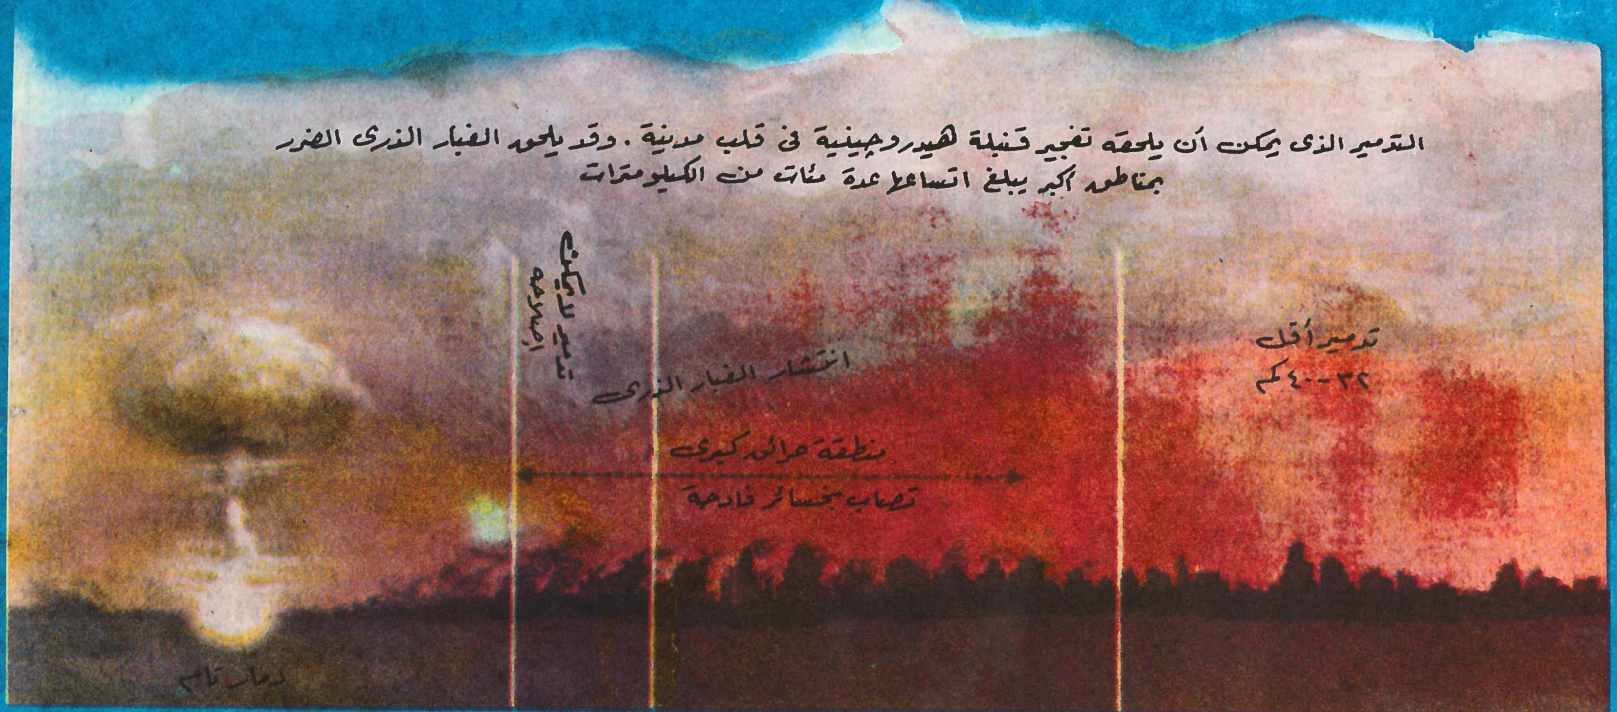 التدمير الذى يمكن أن يلحقه تفجير قنبلة هيدروچينية فى قلب مدينة . وقد يلحق الغبار الذرى الضرر
بمناطق أكبر يبلغ اتساعها عدة مئات من الكيلومترات
تدمير لا يمكن
إصلاحه
تدمير أقل
٣٢-٤٠ كم
انتشار الغبار الذرى
منطقة حرائق كبرى
تصاب بخسائر فادحة
دمار تام